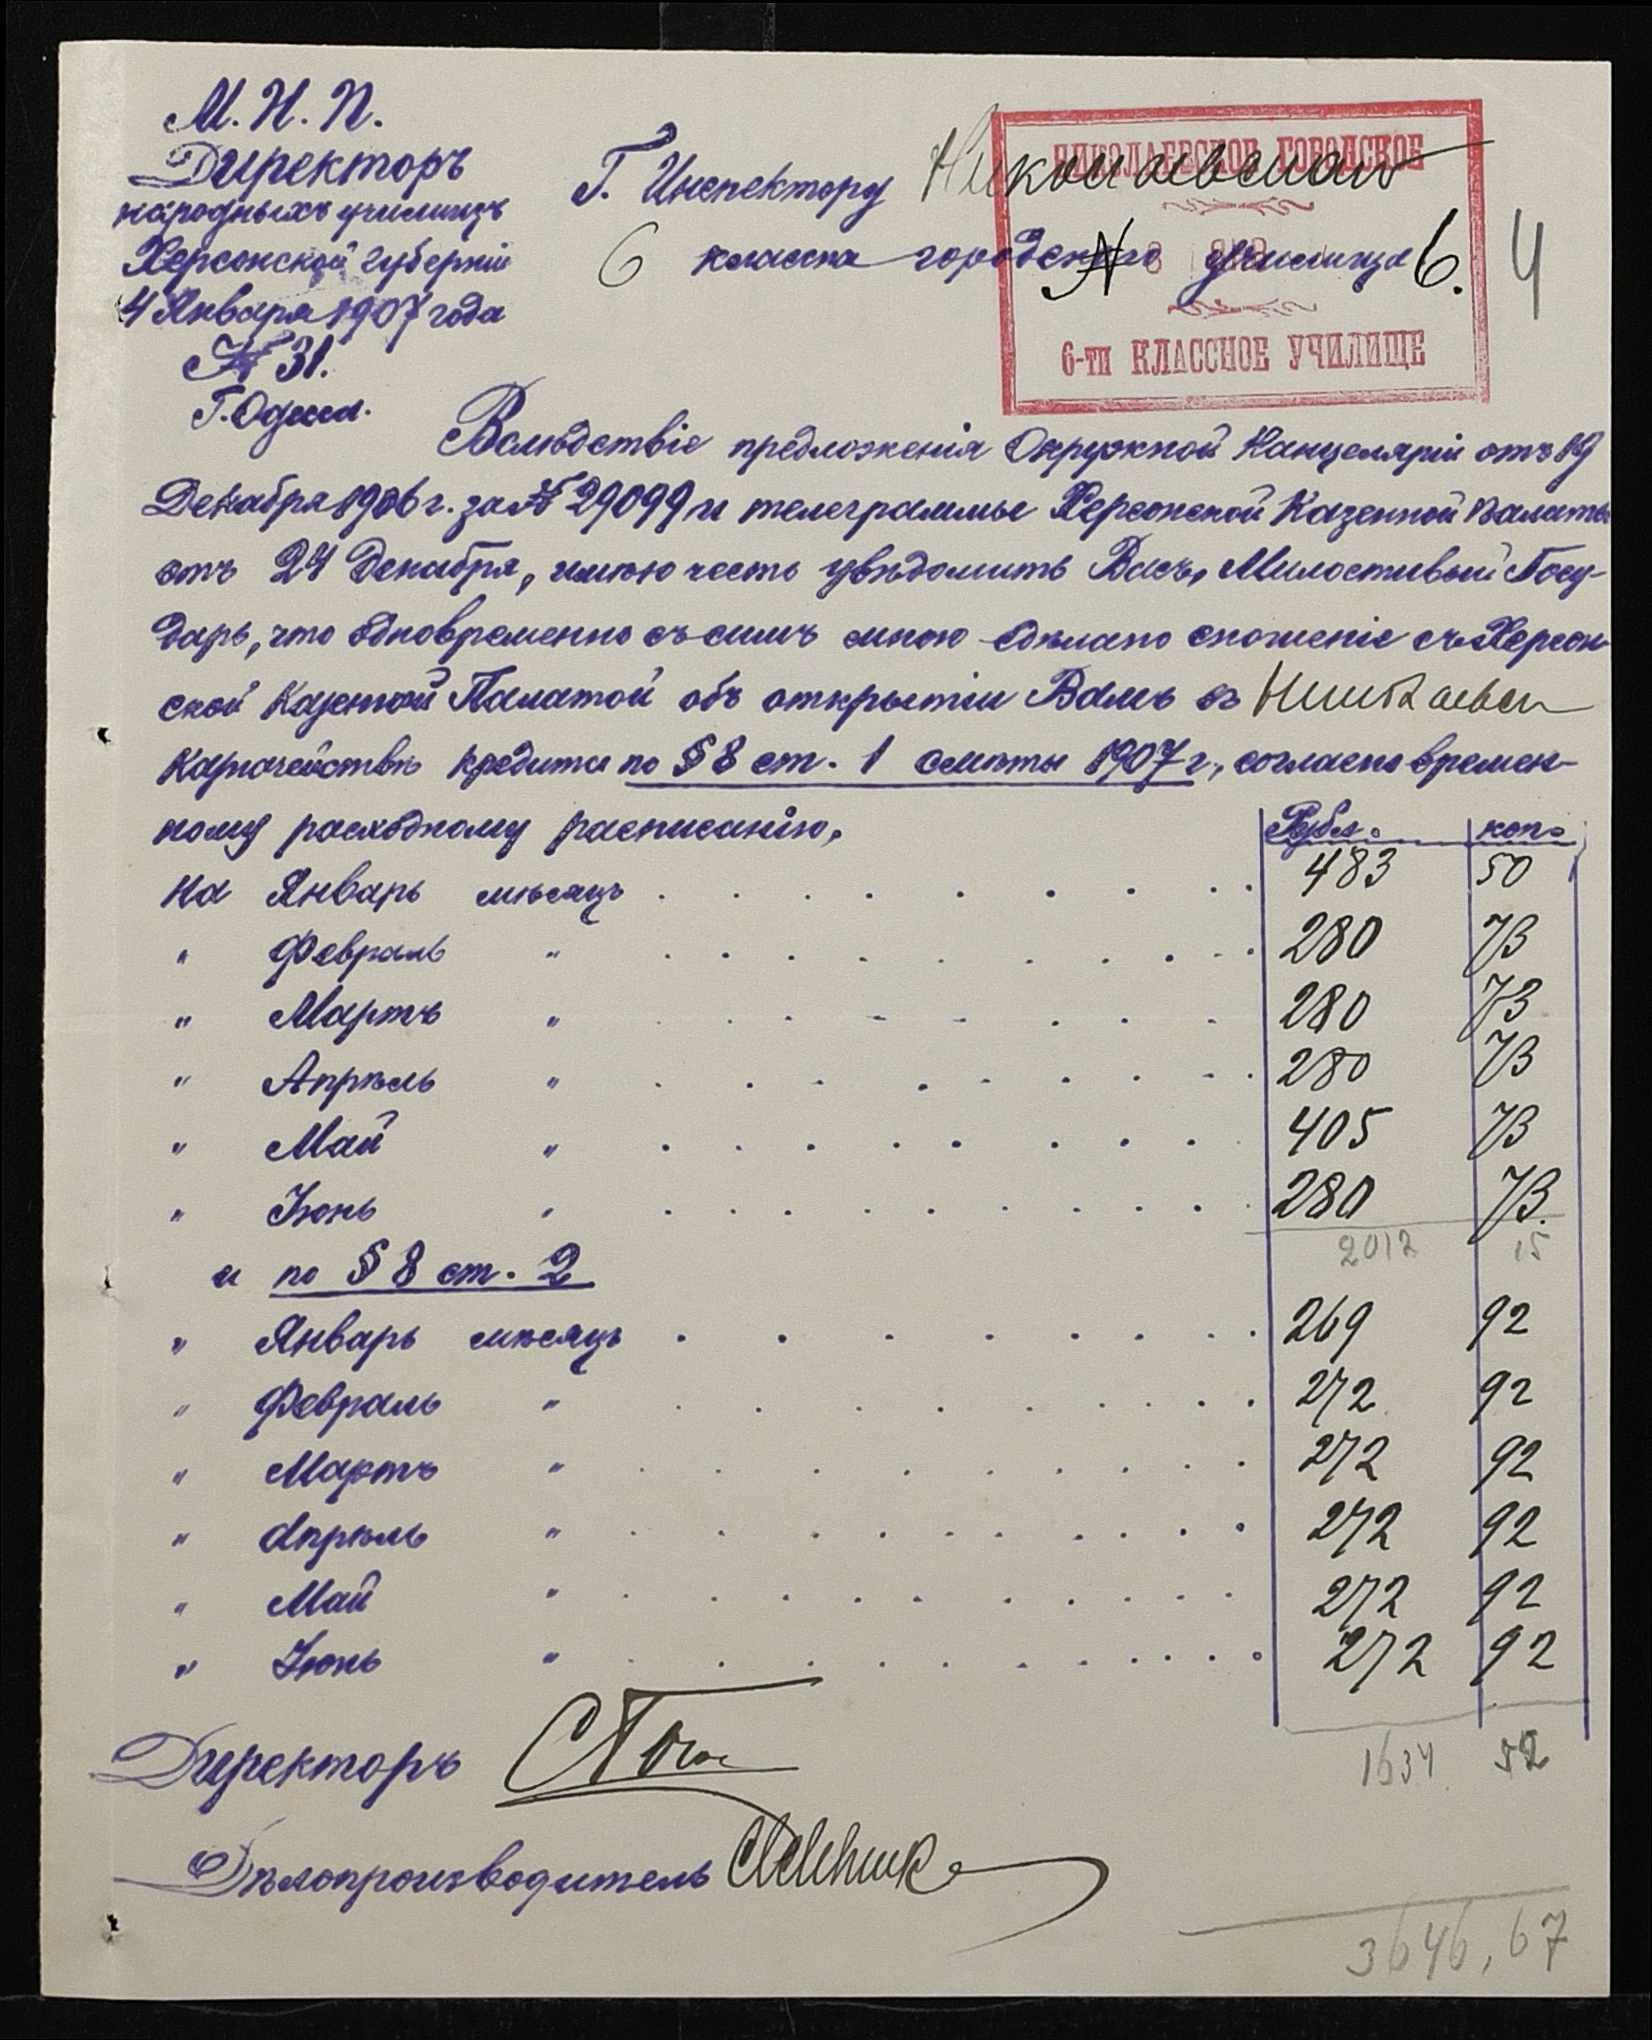 М. Н. П.
Директоръ
народныхъ училищъ
Херсонской губерніи
4 Января 1907 года
№ 31.
Г. Одесса.
Г. Инспектору Николаевскаго
6 класснаго городского училища
НИКОЛАЕВСКОЕ ГОРОДСКОЕ
№ 6.
6-ТИ КЛАССНОЕ УЧИЛИЩЕ
4
Вслѣдствіе предложенія Окружной Канцеляріи отъ 19
Декабря 1906 г. за № 29099 и телеграммы Херсонской Казенной Палаты
отъ 24 Декабря, имѣю честь увѣдомить Васъ, Милостивый Госу-
дарь, что одновременно съ симъ мною сдѣлано сношеніе съ Херсон-
ской Казенной Палатой объ открытіи Вамъ въ
Казначействѣ кредита по § 8 ст. 1 смѣты 1907 г., согласно времен-
ному расходному расписанію,
Рубл. коп.
на Январь мѣсяцъ . . . . . . . . . 483 50
" Февраль " . . . . . . . . . . 280 73
" Мартъ " . . . . . . . . . 280 73
" Апрѣль " . . . . . . . . . . 280 73
" Май " . . . . . . . . . 405 73
" Іюнь " . . . . . . . . . . 280 73.
2012 15
и по § 8 ст. 2
" Январь мѣсяцъ . . . . . . . . . 269 92
" Февраль " . . . . . . . . . . 272 92
" Мартъ " . . . . . . . . . . 272 92
" Апрѣль " . . . . . . . . . . 272 92
" Май " . . . . . . . . . . 272 92
" Іюнь " . . . . . . . . . . . 272 92
1634 52
Директоръ
Дѣлопроизводитель
3646,67